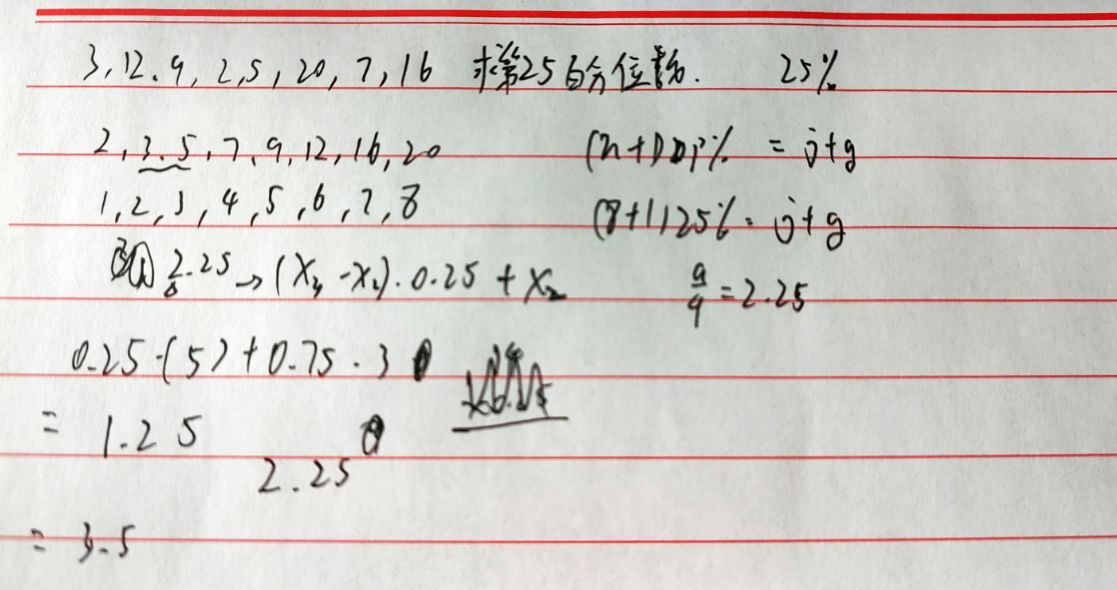 3,12.9,2,5,20,7,16 求第25百分位数. 25%
2,3.5,7,9,12,16,20 (n+1)p% = j+g
1,2,3,4,5,6,7,8 (8+1)25% = j+g
2.25→(X3-X2).0.25+X2 9/4=2.25
0.25·(5)+0.75·3
= 1.25 2.25
= 3.5